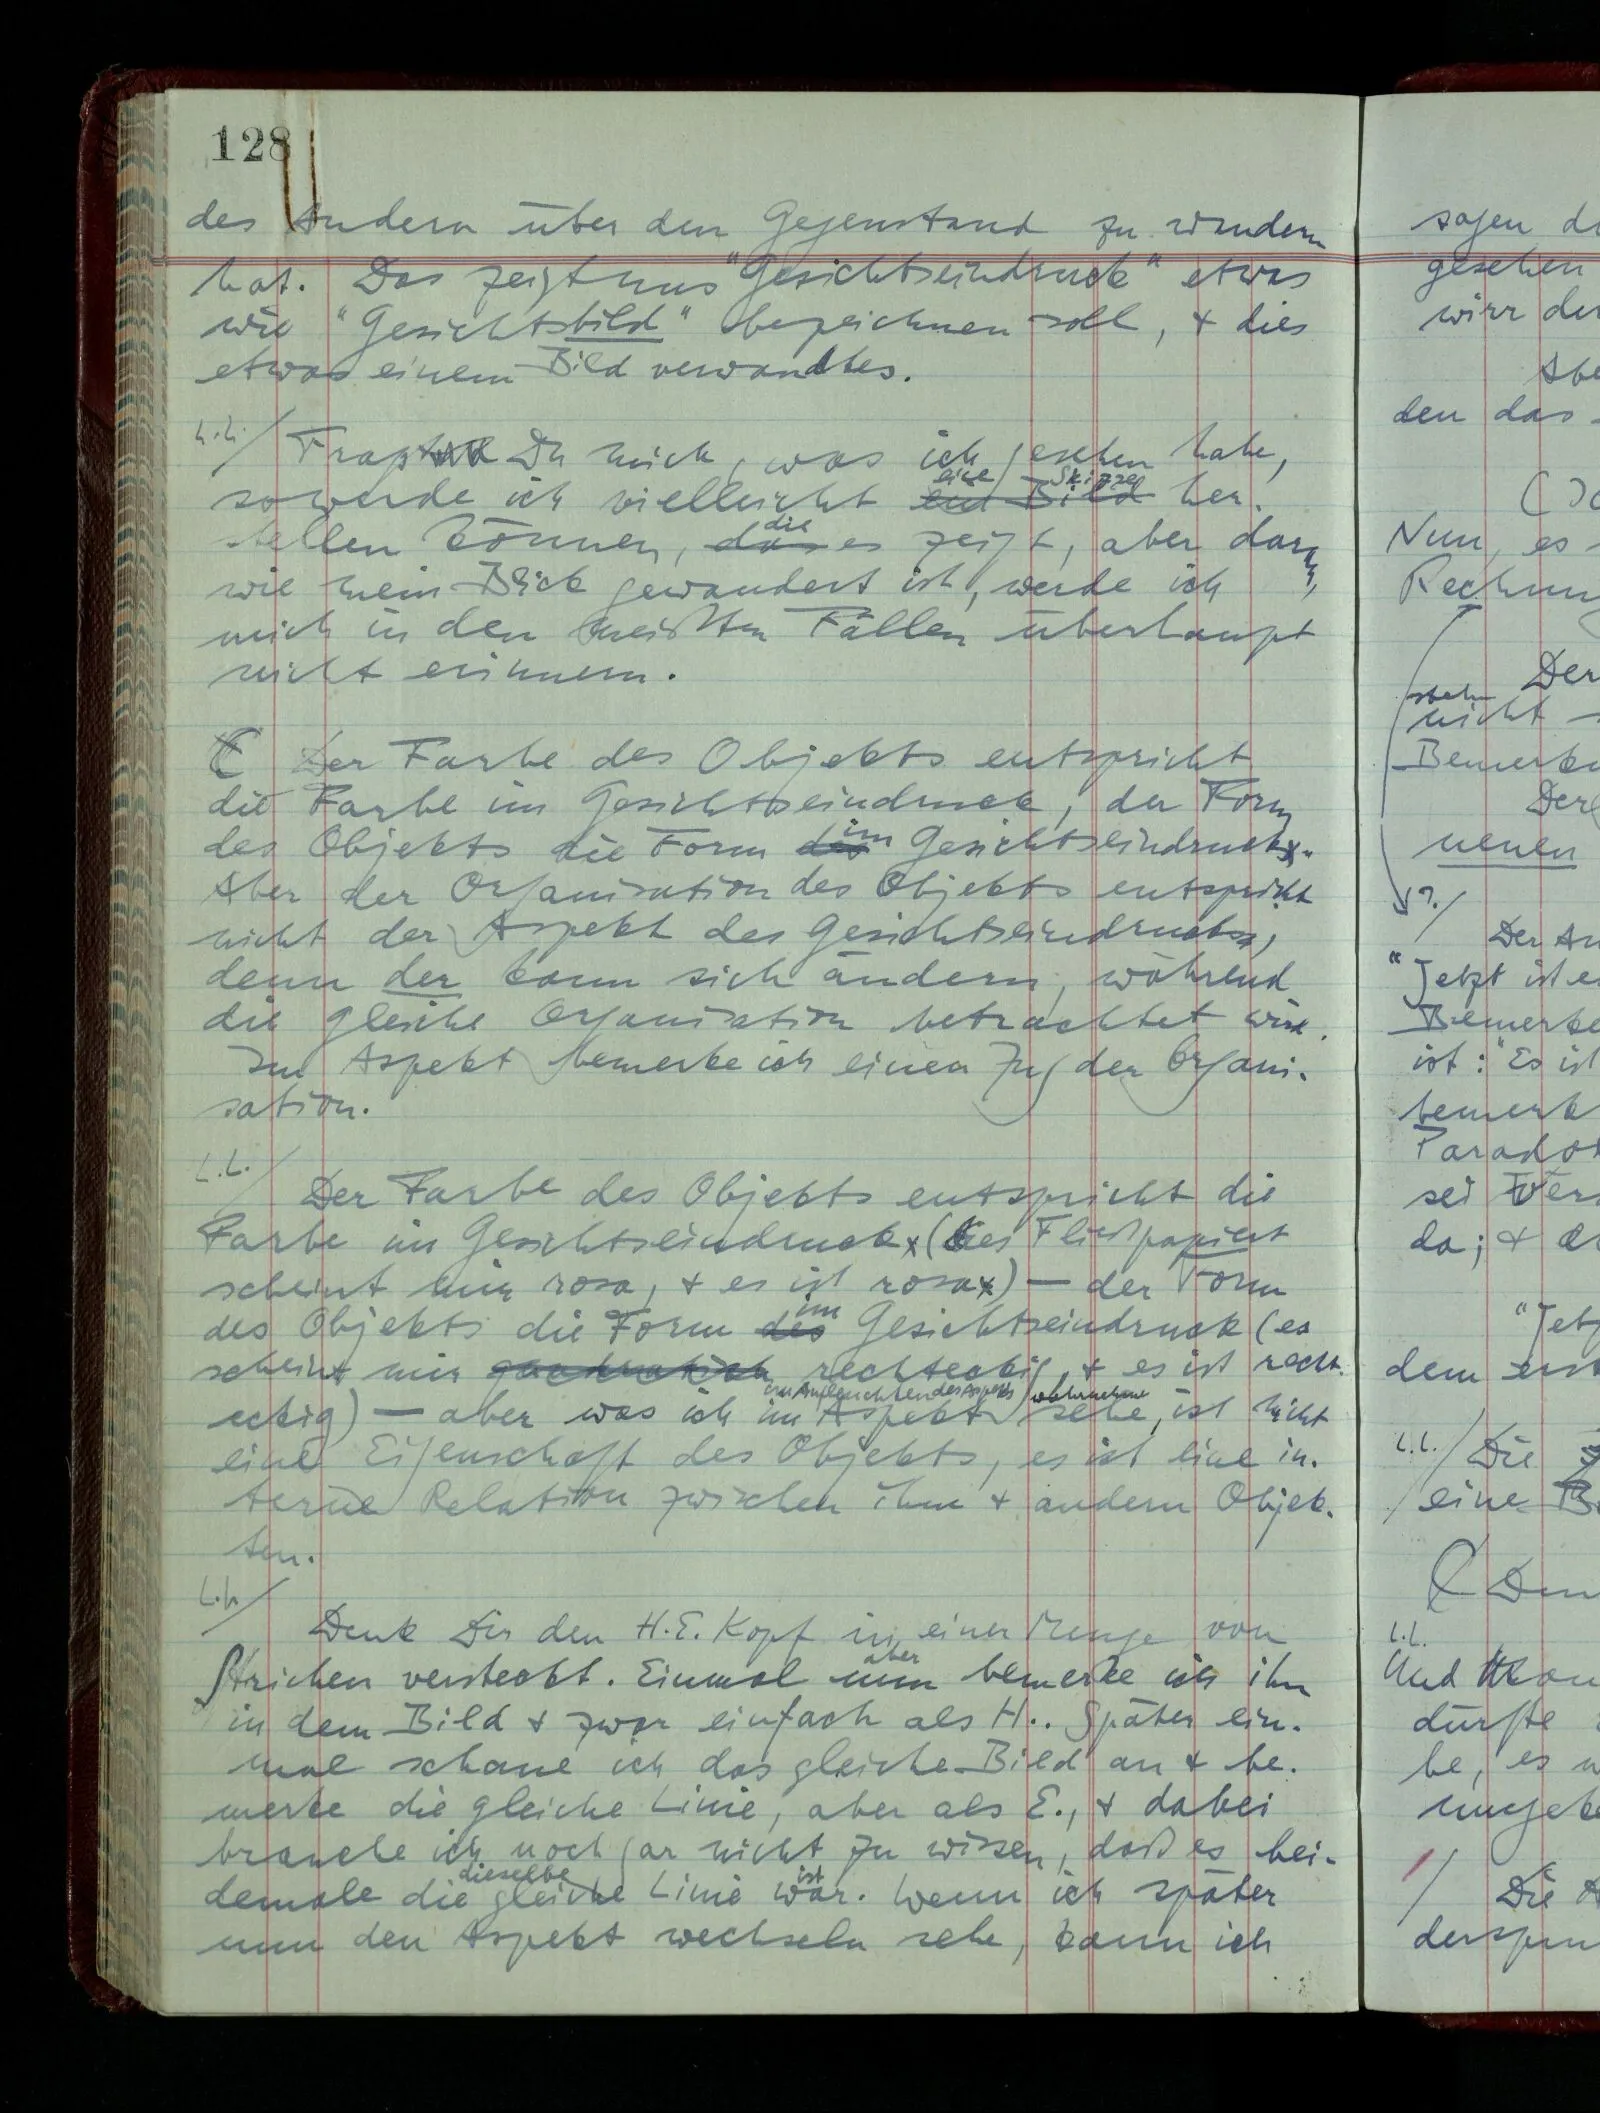 128
des Andern über den Gegenstand zu wandern
hat. Das zeigt uns "Gesichtseindruck" etwas
wie "Gesichtsbild" bezeichnen soll, & dies
etwas einem Bild verwandtes.
Fragst Du mich, was ich gesehen habe,
eine Skizze
so werde ich vielleicht ein Bild her-
die
stellen können, das es zeigt, aber daran,
wie mein Blick gewandert ist, werde ich
mich in den meisten Fällen überhaupt
nicht erinnern.
Der Farbe des Objekts entspricht
die Farbe im Gesichtseindruck, der Form
im
des Objekts die Form des Gesichtseindrucks.
Aber der Organisation des Objekts entspricht
nicht der Aspekt des Gesichtseindrucks,
denn der kann sich ändern, während
die gleiche Organisation betrachtet wird.
Im Aspekt bemerke ich einen Zug der Organi-
sation.
Der Farbe des Objekts entspricht die
Farbe im Gesichtseindruck (dies Fließpapier
scheint mir rosa, & es ist rosa) — der Form
im
des Objekts die Form des Gesichtseindruck (es
scheint mir quadratisch rechteckig, & es ist recht-
im Aufleuchten des Aspekts wahrnehme
eckig) — aber was ich im Aspekt sehe, ist nicht
eine Eigenschaft des Objekts, es ist eine in-
terne Relation zwischen ihm & andern Objek-
ten.
Denk Dir den H.E. Kopf in einer Menge von
aber
Strichen versteckt. Einmal nun bemerke ich ihn
in dem Bild & zwar einfach als H.. Später ein-
mal schaue ich das gleiche Bild an & be-
merke die gleiche Linie, aber als E., & dabei
brauche ich noch gar nicht zu wissen, daß es bei-
dieselbe ist
demale die gleiche Linie war. Wenn ich später
nun den Aspekt wechseln sehe, kann ich
sagen
gesehen
wirr der
den das
Nun, es
Der
stehn
nicht
Der
neuen
?/
"Jetzt ist es
ist: "Es ist
da; &
dem erst
Die
eine
Und
dürfte
be, es
Die